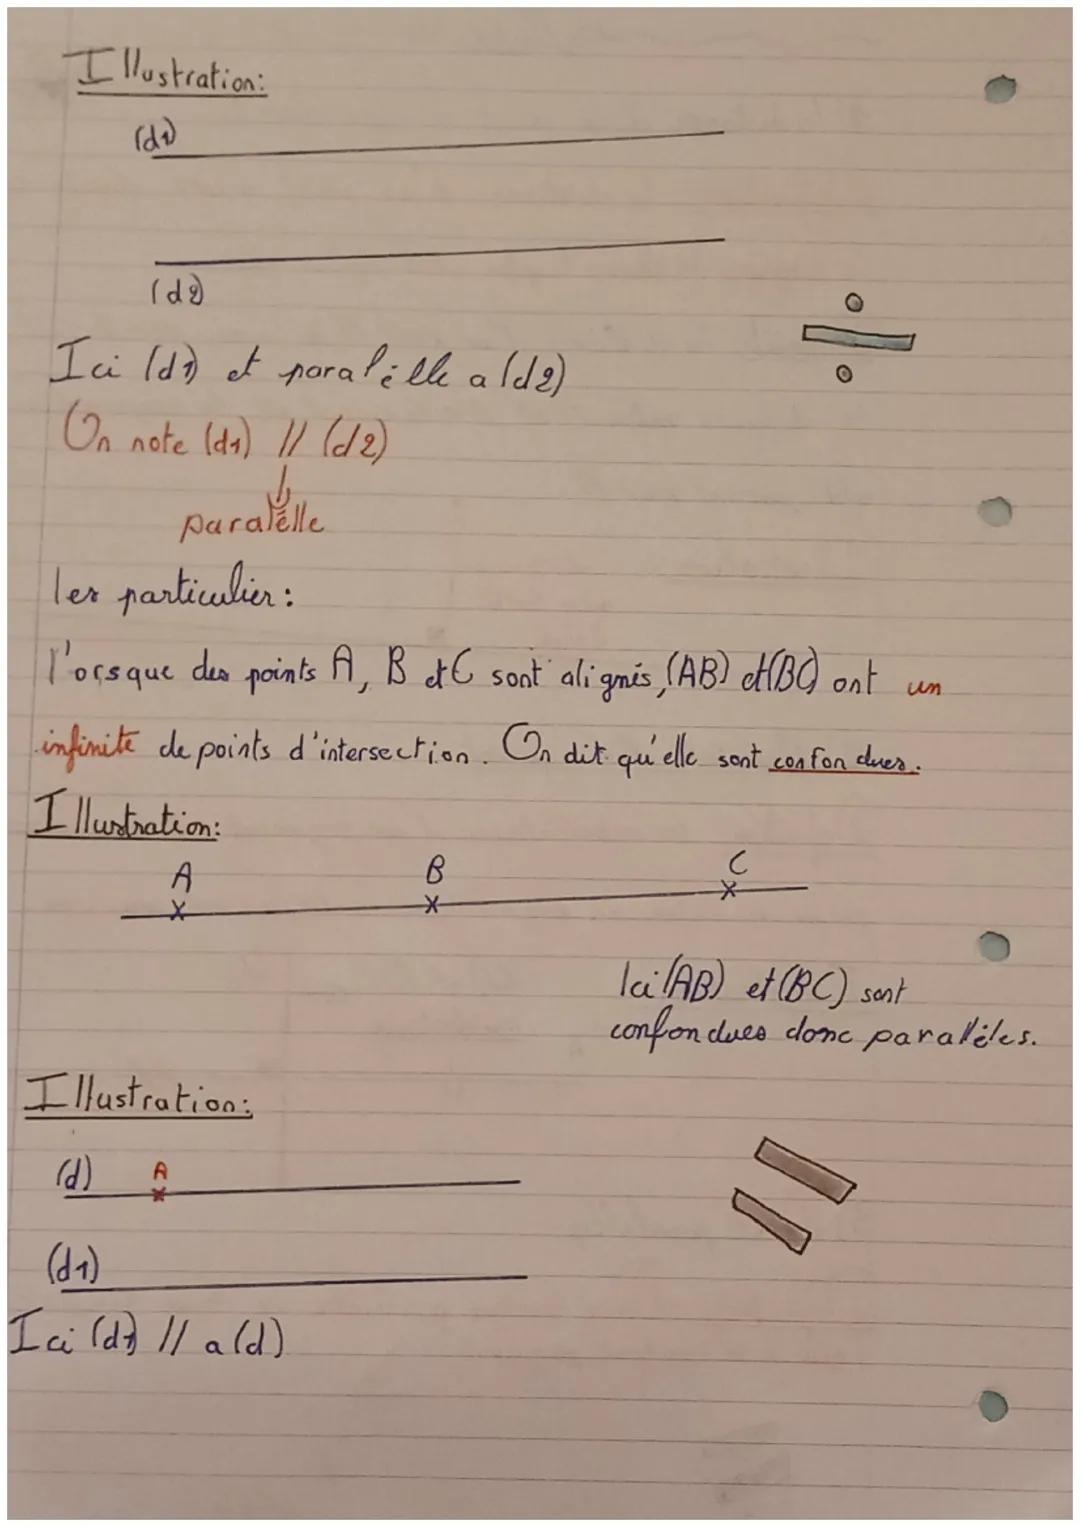 Illustration:
(d1)
(d2)
Ici (d1) et paralélle a (d2)
On note (d1) // (d2)
paralélle
les particulier:
l'orsque des points A, B et C sont alignés, (AB) et (BC) ont un
infinité de points d'intersection. On dit qu'elle sont confondues.
Illustration:
A B C
Ici (AB) et (BC) sont
confondues donc paralléles.
Illustration:
(d) A
(d1)
Ici (d1) // a (d)